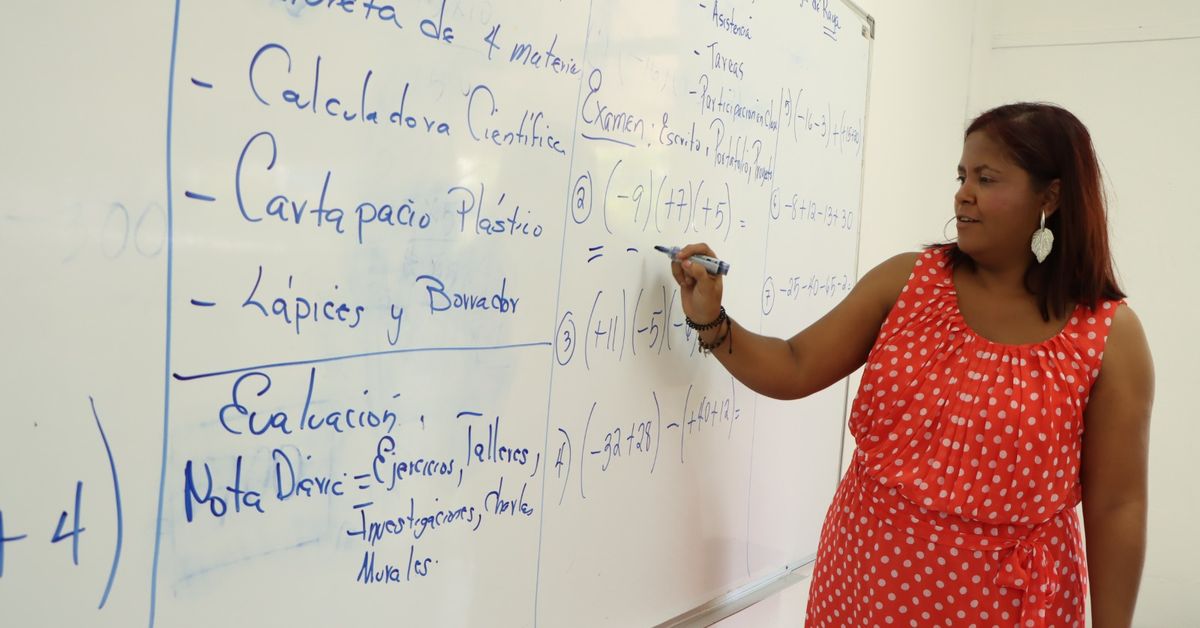 + 4)
de 4 materia
- Calculadora Científica
- Cartapacio Plástico
- Lápices y Borrador
Evaluación.
Nota Diaria = Ejercicios, Talleres,
Investigaciones, Charlas
Murales.
- Asistencia
- Tareas
- Participación en Clase
Examen: Escrito, Portafolio, Proyecto
② (-9)(+7)(+5) =
= -
③ (+11)(-5)(-
4) (-32+28) - (+40+12)=
5) (-16-3) +
⑥ -8+12-13+30
⑦ -25-40-65-2=